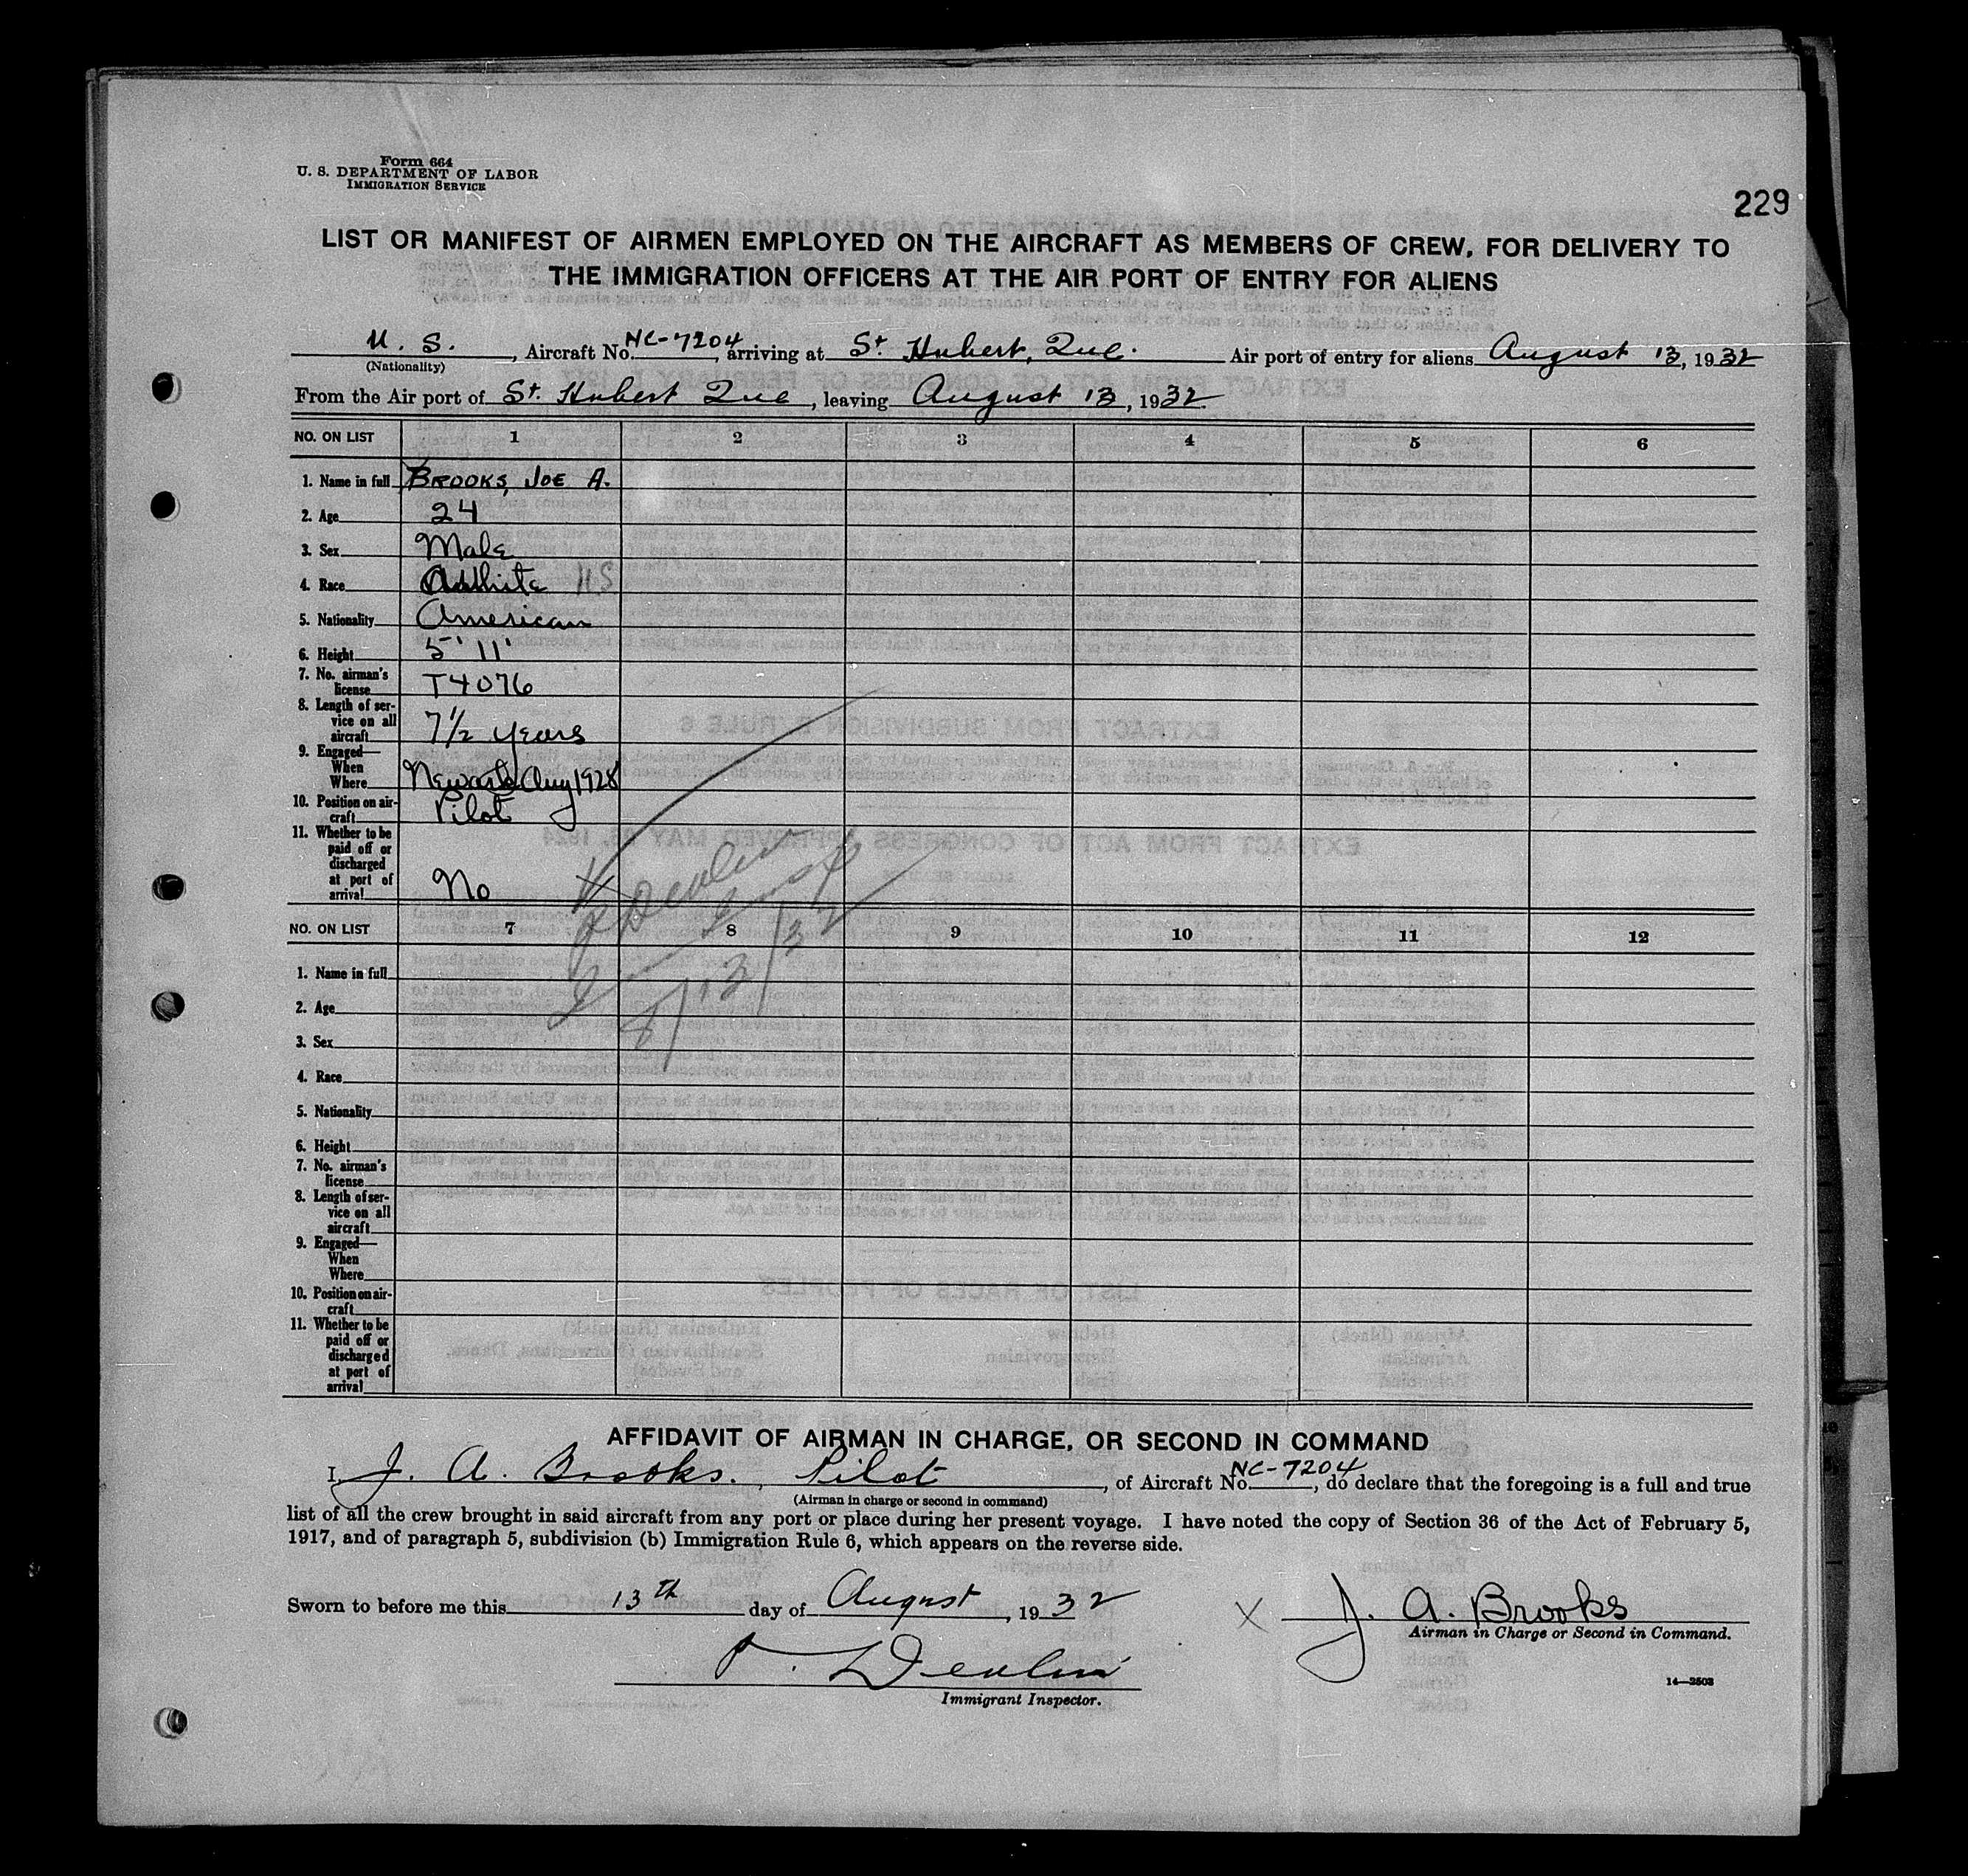 Form 664
U. S. DEPARTMENT OF LABOR
IMMIGRATION SERVICE
229
LIST OR MANIFEST OF AIRMEN EMPLOYED ON THE AIRCRAFT AS MEMBERS OF CREW, FOR DELIVERY TO
THE IMMIGRATION OFFICERS AT THE AIR PORT OF ENTRY FOR ALIENS
U. S., Aircraft No. NC-7204, arriving at St. Hubert, Que. Air port of entry for aliens August 13, 1932
(Nationality)
From the Air port of St. Hubert Que, leaving August 13, 1932.
NO. ON LIST 1 2 3 4 5 6
1. Name in full BROOKS, JOE A.
2. Age 24
3. Sex Male
4. Race White
5. Nationality American
6. Height 5' 11'
7. No. airman's
license T4076
8. Length of ser-
vice on all
aircraft 7 1/2 years
9. Engaged—
When
Where Newark Aug 1928
10. Position on air-
craft Pilot
11. Whether to be
paid off or
discharged
at port of
arrival No
Devlin
8/13/32
NO. ON LIST 7 8 9 10 11 12
1. Name in full
2. Age
3. Sex
4. Race
5. Nationality
6. Height
7. No. airman's
license
8. Length of ser-
vice on all
aircraft
9. Engaged—
When
Where
10. Position on air-
craft
11. Whether to be
paid off or
discharged
at port of
arrival
AFFIDAVIT OF AIRMAN IN CHARGE, OR SECOND IN COMMAND
I, J. A. Brooks, Pilot, of Aircraft No. NC-7204, do declare that the foregoing is a full and true
(Airman in charge or second in command)
list of all the crew brought in said aircraft from any port or place during her present voyage. I have noted the copy of Section 36 of the Act of February 5,
1917, and of paragraph 5, subdivision (b) Immigration Rule 6, which appears on the reverse side.
Sworn to before me this 13th day of August, 1932
X J. A. Brooks
Airman in Charge or Second in Command.
Devlin
Immigrant Inspector.
14—2503